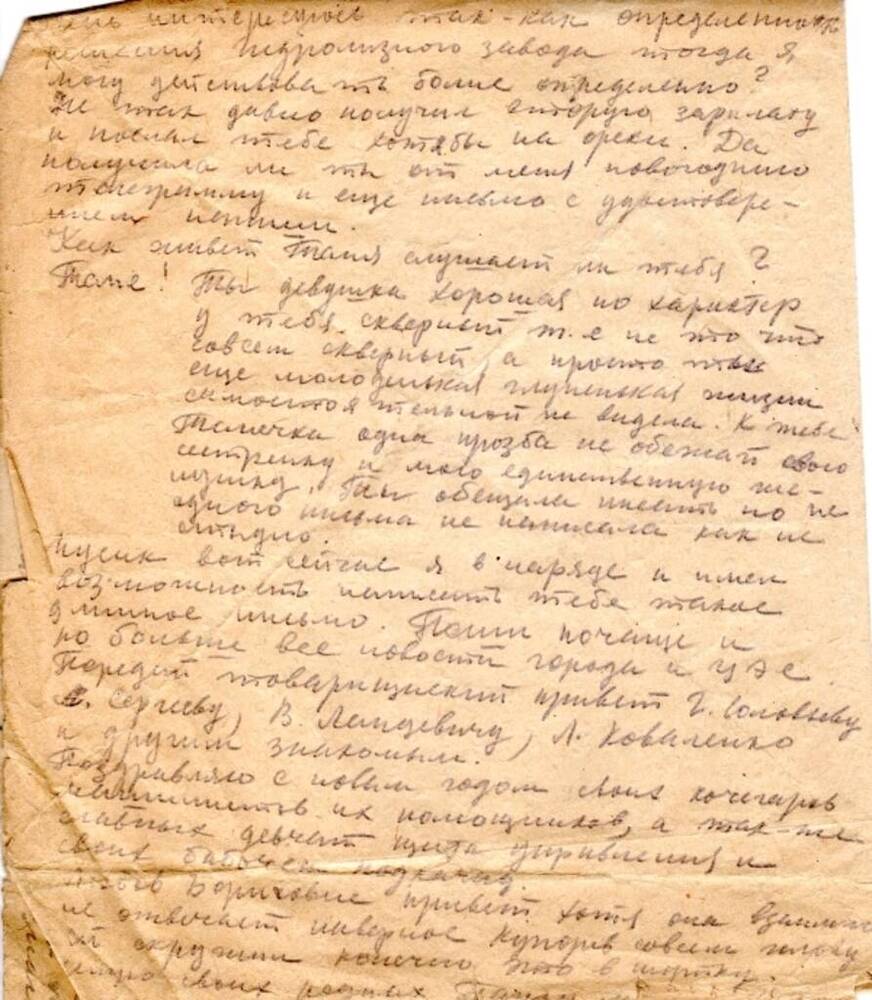 интересуюсь так-как определенно
решения Гидролизного завода тогда я
могу действовать более определенно?
Не так давно получил вторую зарплату
и послал тебе хотябы на орехи. Да
получила ли ты от меня новогоднюю
телеграмму и еще письмо с удостовере-
нием
Как живет Таня слушает ли тебя?
Таня! Ты девушка хорошая но характер
у тебя скверный т.е не то что
совсем скверный, а просто ты
еще молоденькая глупенькая жизни
самостоятельной не видела. К тебе
Танечка одна прозба не обежай свою
сестренку и мою единственную же-
нушку. Ты обещала писать но не
одного письма не написала как не
стыдно.
Мусик вот сейчас я в наряде и имел
возможность написать тебе такое
длинное письмо. Пиши почаще и
по больше все новости города и ЦЭС
Передай товарищеский привет Г. Соловьеву
Сергееву, В. Леидевичу, Л. Коваленко
и другим знакомым.
Поздравляю с новым годом своих кочегаров
машинистов их помощников, а так-же
славных девчат щита управления и
своих бабочек
Борисовне привет хотя она взаимно
не отвечает наверное Купорев совсем голову
ей скружил конечно это в шутку.
своих родных